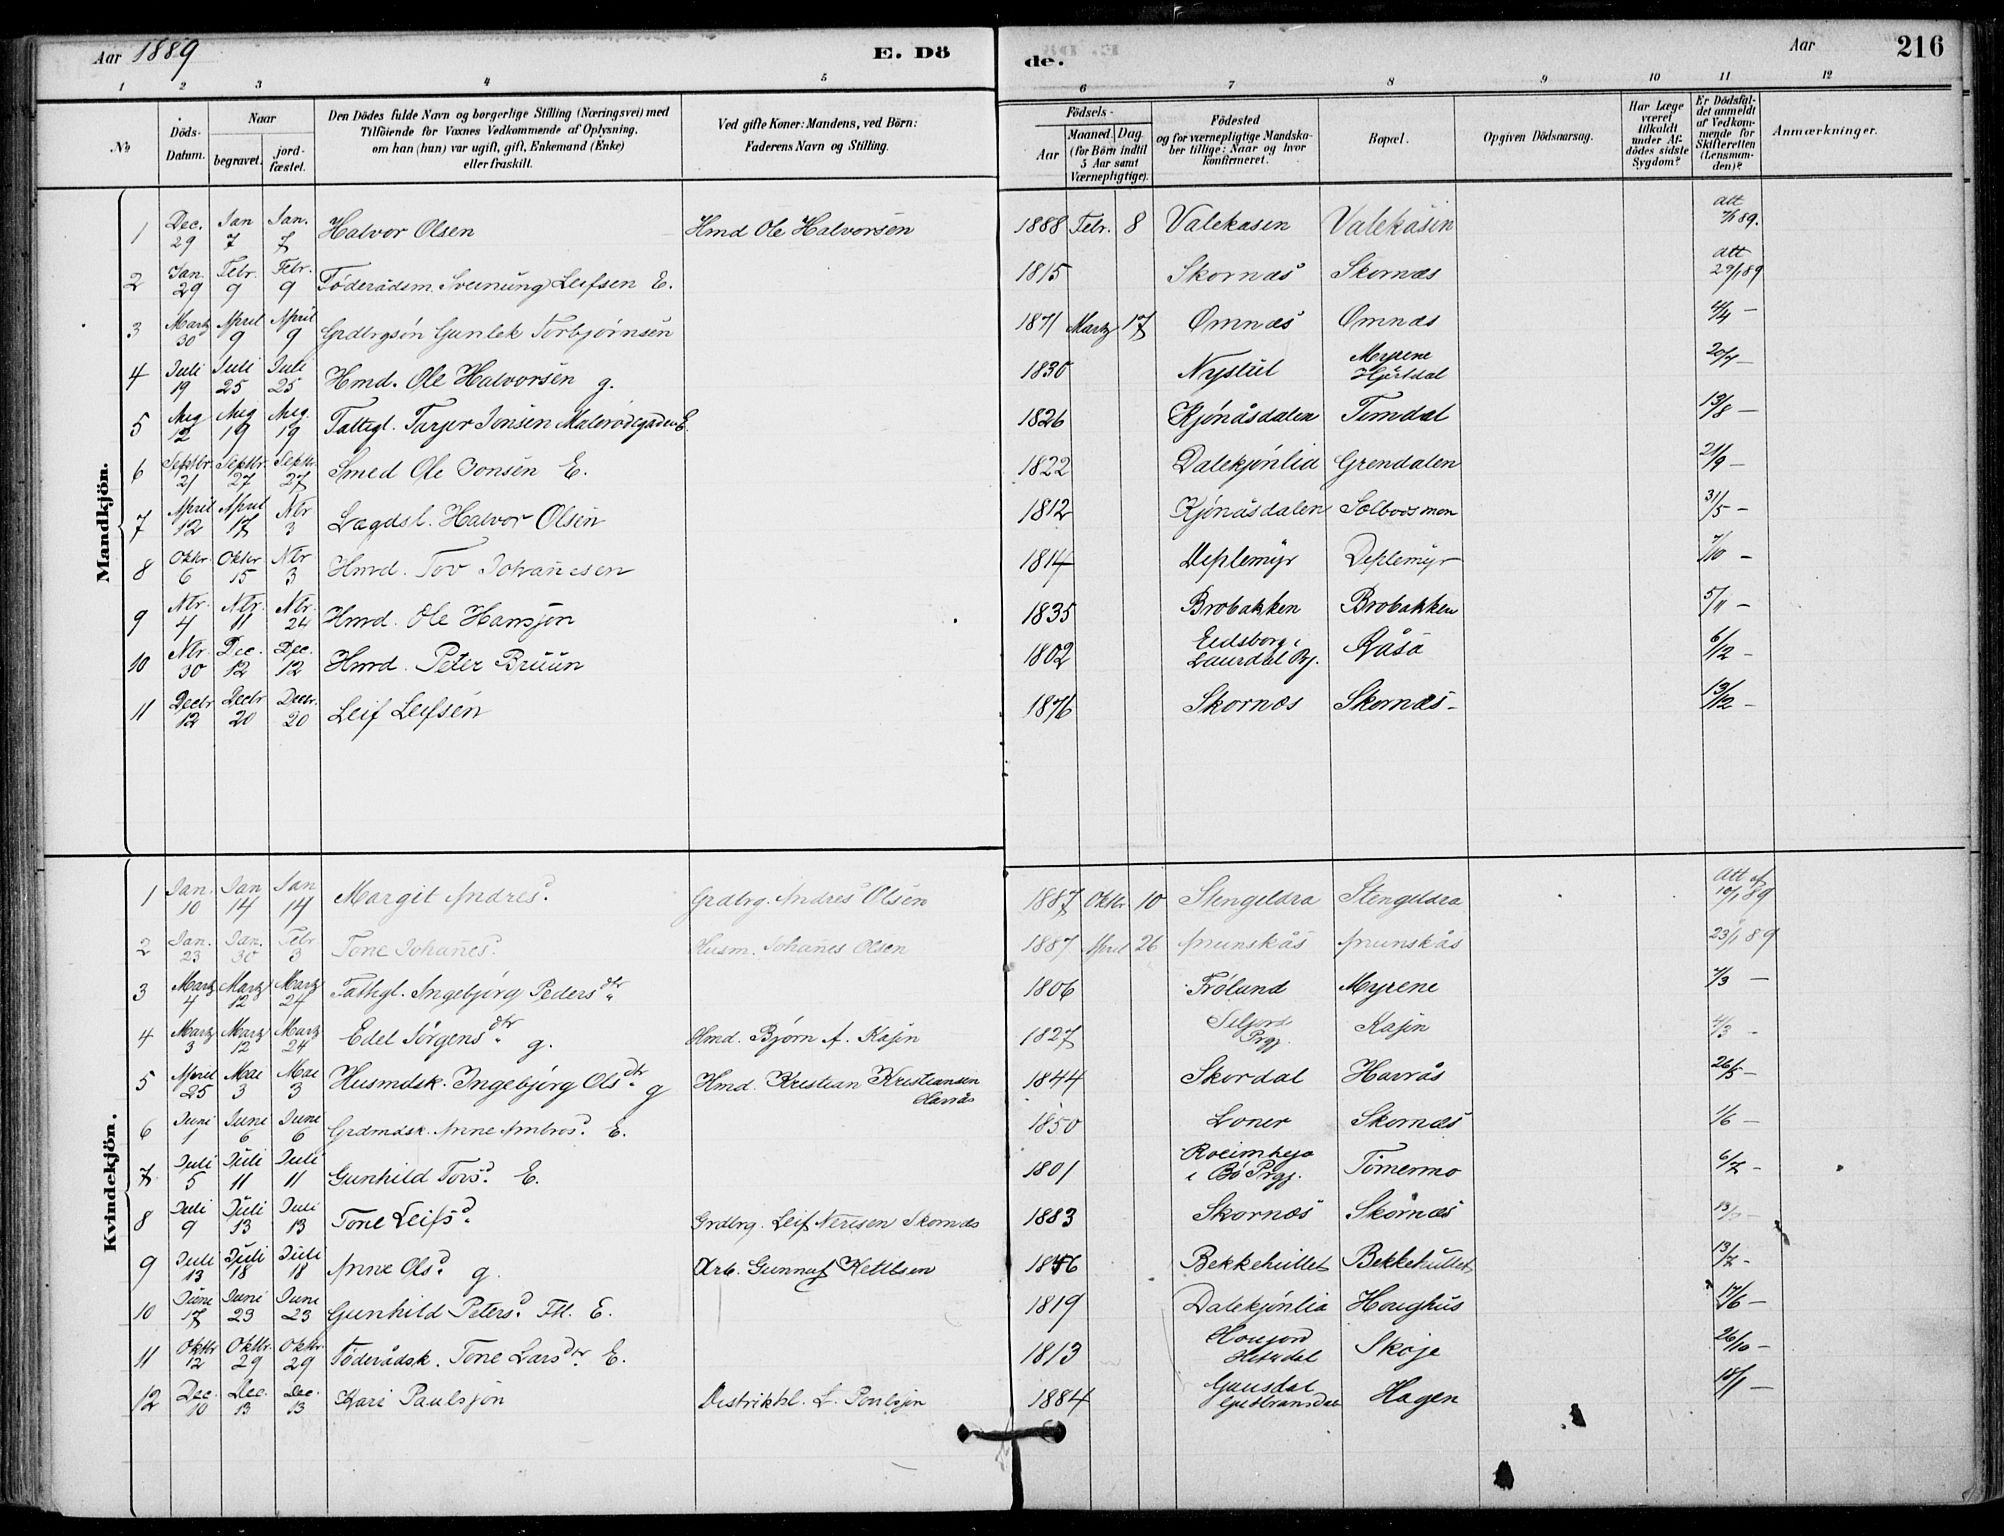 Aar 1889 E. Dö de. Aar 216
1 2 3 4 5 6 7 8 9 10 11 12
№
Döds-Datum.
Naar
begravet.
jord-fæstet.
Den Dödes fulde Navn og borgerlige Stilling (Næringsvei) med
Tilföiende for Voxnes Vedkommende af Oplysning,
om han (hun) var ugift, gift, Enkemand (Enke)
eller fraskilt.
Ved gifte Koner: Mandens, ved Börn:
Faderens Navn og Stilling.
Födsels-
Aar
Maaned. Dag.
(for Börn indtil
5 Aar samt
Værnepligtige).
Födested
og for værnepligtige Mandska-
ber tillige: Naar og hvor
konfirmeret.
Bopæl.
Opgiven Dödsaarsag.
Har Læge
været
tilkaldt
under Af-
dödes sidste
Sygdom?
Er Dödsfal-
det anmeldt
af Vedkom-
mende for
Skifteretten
(Lensman-
den)?
Anmærkninger.
Mandkjön.
1 Dec. 29 Jan 7 Jan. 7 Halvor Olsen Hmd Ole Halvorsen 1888 Febr. 8 Valekasen Valekåsin att 89.
2 Jan. 29 Febr. 9 Febr. 9 Föderådsm. Sveinung Leifsen E. 1815 Skornæs Skornæs att 29/1 89
3 Martz 30 April 9 April 9 Grdbrgsön Gunlek Torbjørnsen 1871 Martz 17 Omnæs Omnæs 4/4 –
4 Juli 19 Juli 25 Juli 25 Hmd. Ole Halvorsen g. 1830 Nystul Myrene Hjertdal 20/7 –
5 Aug 12 Aug 19 Aug. 19 Fattigl. Tarjer Jonsen E. 1826 Kjönåsdalen Tomdal 13/8 –
6 Septbr. 21 Septbr. 27 Septbr. 27 Smed Ole Jonsen E. 1822 Dalekjønlia Grendalen 21/9 –
7 April 12 April 17 Nbr 3 Lægdsl. Halvor Olsen 1812 Kjönåsdalen 31/5 –
8 Oktbr. 6 Oktbr 15 Nbr 3 Hmd. Tov Johannesen 1814 Deplemyr Deplemyr 7/10 –
9 Nbr. 4 Nbr. 11 Nbr. 24 Hmd. Ole Hansjøn 1835 Brobakken Brobakken 5/11 –
10 Nbr. 30 Dec. 12 Dec. 12 Hmd. Peter Bruun 1802 Eidsborg i Laurdal Prj. Råså 6/12 –
11 Decbr 12 Decbr 20 Decbr. 20 Leif Leifsen 1876 Skornæs Skornæs – 13/12 –
Kvindekjön.
1 Jan. 10 Jan 14 Jan 14 Margit Andresd. Grdbrg. Andres Olsen 1887 Oktbr. 10 Stengeldra Stengeldra Att af 10/1 89
2 Jan. 23 Jan. 30 Febr 3 Tone Johañesd. Husm. Johañes Olsen 1887 April 26 Amunskås Amunskås 23/1 89
3 Martz 4 Martz 12 Martz 24 Fattigl. Ingebjörg Pedersdtr. 1806 Frölund Myrene 7/3 –
4 Martz 3 Martz 12 Martz 24 Edel Jörgensdtr. g. Hmd. Bjørn A. Kasin 1827 Seljord Prgj. Kasin 4/3 –
5 April 25 Mai 3 Mai 3 Husmdsk. Ingebjörg Olsdtr. g Hmd. Kristian Kristiansen Havrås 1844 Skordal Havrås 26/5 –
6 Juni 1 June 6 June 6 Grdmdsk. Anne Ambrosd. E. 1850 Loner Skornæs 1/6 –
7 Juli 5 Juli 11 Juli 11 Gunhild Torsd. E. 1801 Roeimheja i Bø Prgj. Tömermo 6/7 –
8 Juli 9 Juli 13 Juli 13 Tone Leifsd. Grdbrg. Leif Nerisen Skornæs 1883 Skornæs Skornæs
9 Juli 13 Juli 18 Juli 18 Anne Olsd. g. Arb. Gunnuf Ketilsen 1846 Bekkehullet Bekkehullet 13/7 –
10 June 17 Juni 23 June 23 Gunhild Petersd. Ftl. E. 1819 Dalekjønlia Houghus 17/6 –
11 Oktbr 12 Oktbr. 29 Oktbr. 29 Föderådsk. Tone Larsdtr. E. 1813 Skoje 26/10 –
12 Dec. 10 Dec. 13 Dec. 13 Kari Paulsjøn Distriktsl. L. Poulsjøn 1884 Gausdal Gudbransdal Hagen